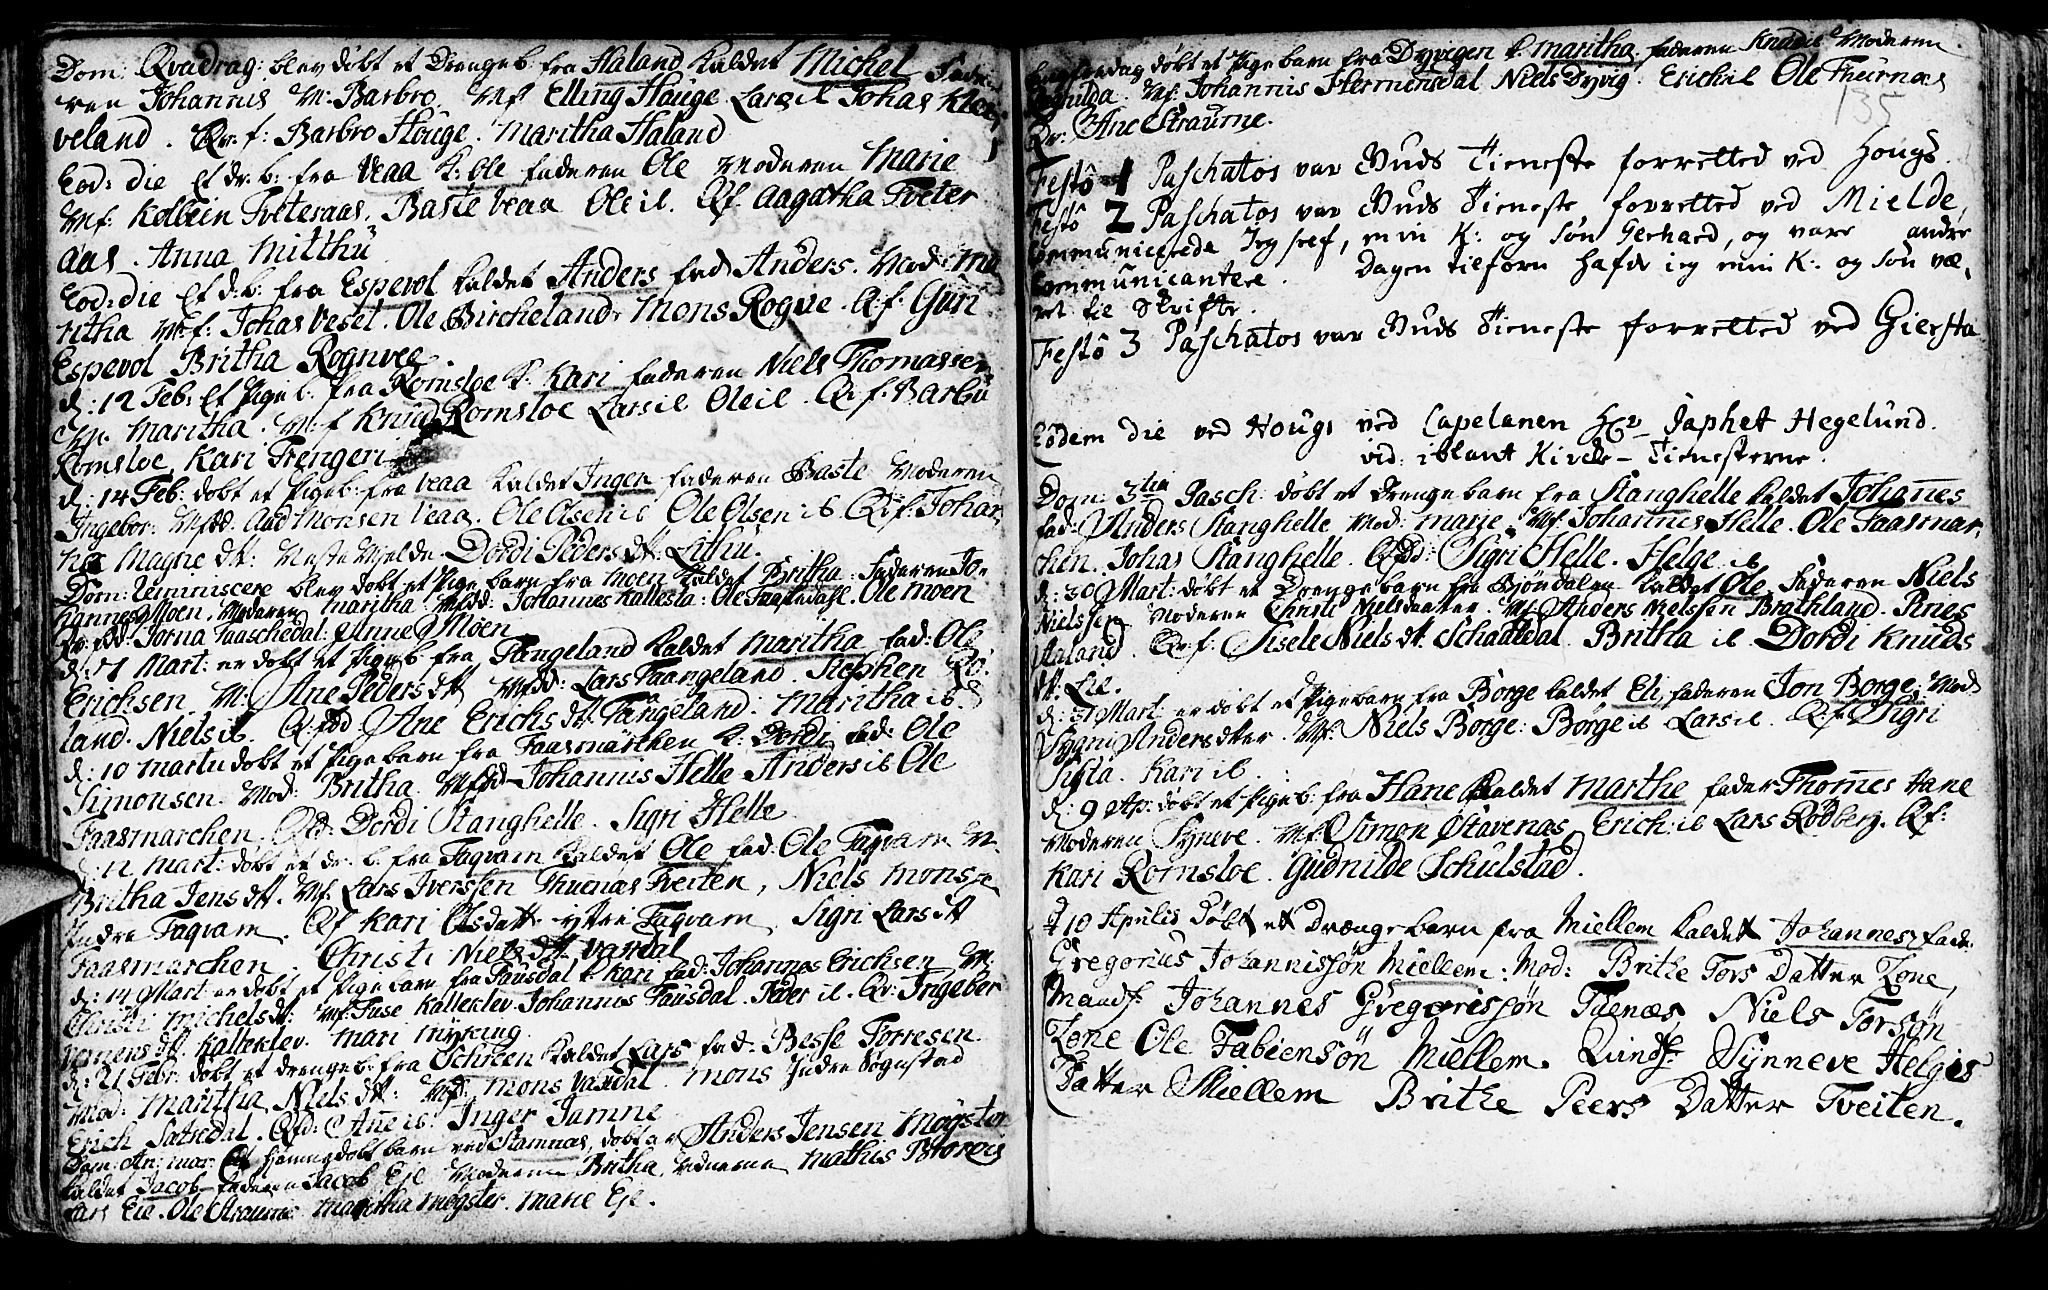 Dom: Qvadrag: blev döbt et Drengeb. fra Haland kaldet Michel Fade-
ren Johannes M: Barbro. Mf Elling Houge Lars ib Johas Klee-
veland. Qv. f: Barbro Houge. Maritha Haland
Eod: die Et dr: b: fra Veaa k: Ole faderen Ole Moderen Marie
Mf: Kolbein Tvetesaas, Baste Veaa Ole ib. Qf Aagatha Tveter
aas. Anna Mitthu
Eod: die Et d: b: fra Espevol kaldet Anders fad Anders. Mod: Ma
ritha Mf: Johas Vesel. Ole Bircheland. Mons Rogne. Q. f: Guri
Espevol Britha Rognvee.
d: 12 Feb: Et Pigeb: fra Romsloe k. Kari faderen Niels Thomassen
M. Maritha. M: f Knud Romsloe Lars ib Ole ib. Q. f: Barbu
Romsloe, Kari Trengeri
d: 14 Feb: dobt et Pigeb: fra Veaa kaldet Inger faderen Baste Moderen
Ingebor: Mfdd: Aad Monsen Veaa. Ole Olsen ib Ole Olsen ib Q. f: Johan
ne Magne dt: Neste Mielde. Dordi Peders dt. Lithu.
Dom: Reminiscere blev dobt et Pige barn fra Moen kaldet Britha Faderen Jo-
hannes Moen, Moderen Maritha. Mfdd: Johannes Kallesta: Ole. Ole Moen
Qv. fdd: Jorna Faaschedal: Anne Moen
d: 7 Mart: er dobt et Pigeb. fra Fangeland kaldet Maritha fad: Ole
Erichsen M: Ane Peders dt Mfdd: Lars Faangeland. Stephen Ro:
land. Niels ib. Q: fdd Ane Erichs dt: Fangeland: Maritha ib.
d: 10 Martii dobt et Pigebarn fra Faasmarchen k: Dordi fad: Ole
Simonsen. Mod: Britha. Mfdd Johannis Helle Anders ib Ole
Faasmarchen. Qd: Dordi Stanghelle. Sigri Helle
d: 12 Mart: dobt et dr. b. fra Faqvam kaldet Ole fad: Ole Faqvam M.
Britha Jens dt. Mf. Lars Iverssen Thuenas Tveiten, Niels Monse
Indre Faqvam. Qf Kari Olsdatt. ytre Faqvam. Sigri Lars dt
Faasmarchen. Christi Niels dt Vaxdal
d: 14 Mart: er dobt et Pigebarn fra Fausdal k Kari fad: Johannes Erichsen M:
Christi Michels dt: Mf. Fuse Kalleklev. Johannes Fausdal. Peder ib. Qv: Ingeber
Kalleklev. Mari Myking
d: 21 Febr. dobt et drengeb. fra Schreen kaldet Lars fad: Besse Torresen
Mod: Maritha Niels dt: Mfd: Mons Vaxdal. Mons Indre Sognstad
Erich Sætredal. Qfd: Ane ib. Inger Jamne
Dom: An: mar: Et hiemmedobt barn ved Stamnas, dobt a Anders Jensen Møyster
kaldet Jacob faderen Jacob Eje Moderen Britha, vidnerne Mathis
Lars Eie. Ole Straume Maritha Møgster. Marie Eje.
döbt et Pige barn fra Dyvigen k. Maritha. faderen Knud ib Moderen
Mf: Johannis Hermensdal Niels Dyvig. Erich ib Ole Thurnas
135
Qv: Ane Straume.
Festô 1 Paschatos var Guds Tieneste forretted ved Hougs.
Festô 2 Paschatos var Guds Tieneste forretted ved Mielde,
Communicerede Jeg self, min K: og søn Gerhard, og vare andre
Communicantere. Dagen tilforn hafde jeg min K: og søn væ-
ret til Skrifte.
Festô 3 Paschatos var Guds Tieneste forretted ved Giersta
Eodem die ved Hougs ved Capelanen Hr Japhet Hegelund.
vid: iblant Kircke-Tienesterne.
Dom: 3tia Pasch: döbt et drengebarn fra Stanghelle kaldet Johannes
fad: Anders Stanghelle Mod: Marie. Mf: Johannes Helle. Ole Faasmar,
chen. Johas Stanghelle. Qfd: Sigri Helle. Helge ib
d: 30 Mart: döbt et Drengebarn fra Bjöndalen kaldet Ole Faderen Niels
Nielssen Moderen Christi Nielsdaater. Mf Anders Nielssen Brathland. Pines
Haland. Qv. f: Sisele Niels dt. Schaaldal. Britha ib Dordi Knuds
dt: Lie.
d: 31 Mart: er döbt et Pigebarn fra Borge kaldet Eli, faderen Jon Borge, Mod
Sygni Andersdtter. Mf: Niels Borge: Borge ib Lars ib. Q. f. Sigri
Sista. Kari ib.
d: 9 Ap: döbt et Pigeb: fra Hane kaldet Marthe fader Thomes Hane
Moderen Syneve. Mf: Simon Stavenas, Erich ib Lars Rödberg. Qf:
Kari Romsloe. Gudnilde Schulstad.
d 10 Aprilis Döbt ett drængebarn fra Miellem kaldet Johannes, fade:
Gregorius Johannissön Miellem: Mod: Brithe Tors Datter Zone,
Mandf: Johannes Gregorissön Tuenæs, Niels Torsön
Zone Ole Fabiensön Miellem. Qvindf: Synneve Helgis
Datter Miellem Brithe Peers Datter Tveiten.